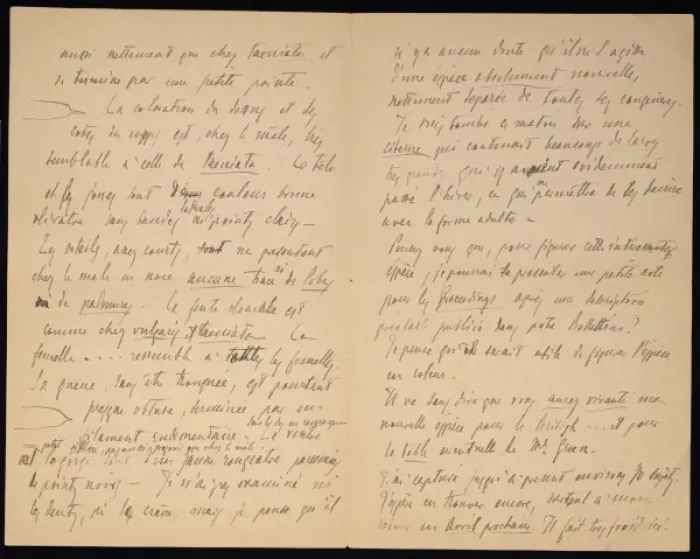 aussi nettement que chez taeniata, et
se termine par une petite pointe.
La coloration du dessus et des
côtés du corps est, chez le mâle, très
semblable à celle de taeniata. La tête
et les joues sont d'une couleur brune
olivâtre sans bandes ni points clairs —
latérales
Les orteils, assez courts, ne présentent
chez le mâle en noce aucune trace ni de lobes
ni de palmures. La fente cloacale est
comme chez vulgaris et taeniata. La
femelle .... ressemble à les femelles.
La queue, sans être tronquée, est pourtant
presque obtuse, terminée par un
filament rudimentaire. Le ventre
et la gorge sont d'un jaune orangeâtre parsemés
de points noirs — Je n'ai pas examiné ni
les dents, ni le crâne, mais je pense qu'il
n'y a aucun doute qu'il ne s'agisse
d'une espèce absolument nouvelle,
nettement séparée de toutes ses congénères.
Je suis tombé ce matin sur une
citerne qui contenait beaucoup de larves
très grandes, qui y avaient évidemment
passé l'hiver, ce qui me permettra de les décrire
avec la forme adulte —
Pensez vous que, pour figurer cette intéressante
espèce, je pourrai te présenter une petite note
pour les Proceedings après ma description
préalable publiée dans votre Bollettino?
Je pense qu'il serait utile de figurer l'espèce
en couleur.
Il va sans dire que vous aurez vivante ma
nouvelle espèce pour le British ... et pour
la table éventuelle de Mr Green.
J'ai capturé jusqu'à présent environ 30 sujets.
J'espère en trouver encore, surtout à mon
retour en avril prochain. Il fait très froid ici.